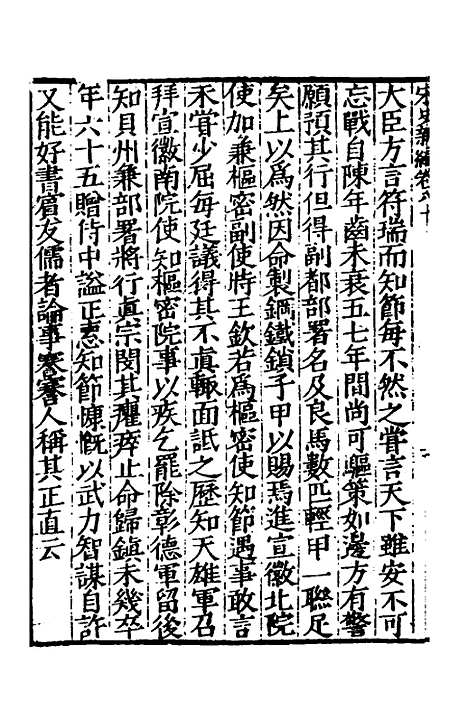 宋史新編卷八十
大臣方言符瑞而知節每不然之嘗言天下雖安不可
忘戰自陳年齒未衰五七年間尚可驅策如邊方有警
願預其行但得副都部署名及良馬數匹輕甲一聯足
矣上以爲然因命製鋼鐵鎖子甲以賜焉進宣徽北院
使加兼樞密副使時王欽若爲樞密使知節遇事敢言
未嘗少屈每廷議得其不直輙面詆之歷知天雄軍召
拜宣徽南院使知樞密院事以疾乞罷除彰德軍留後
知貝州兼部署將行眞宗閔其癯瘁止命歸鎮未幾卒
年六十五贈侍中謚正惠知節慷慨以武力智謀自許
又能好書賔友儒者論事謇謇人稱其正直云